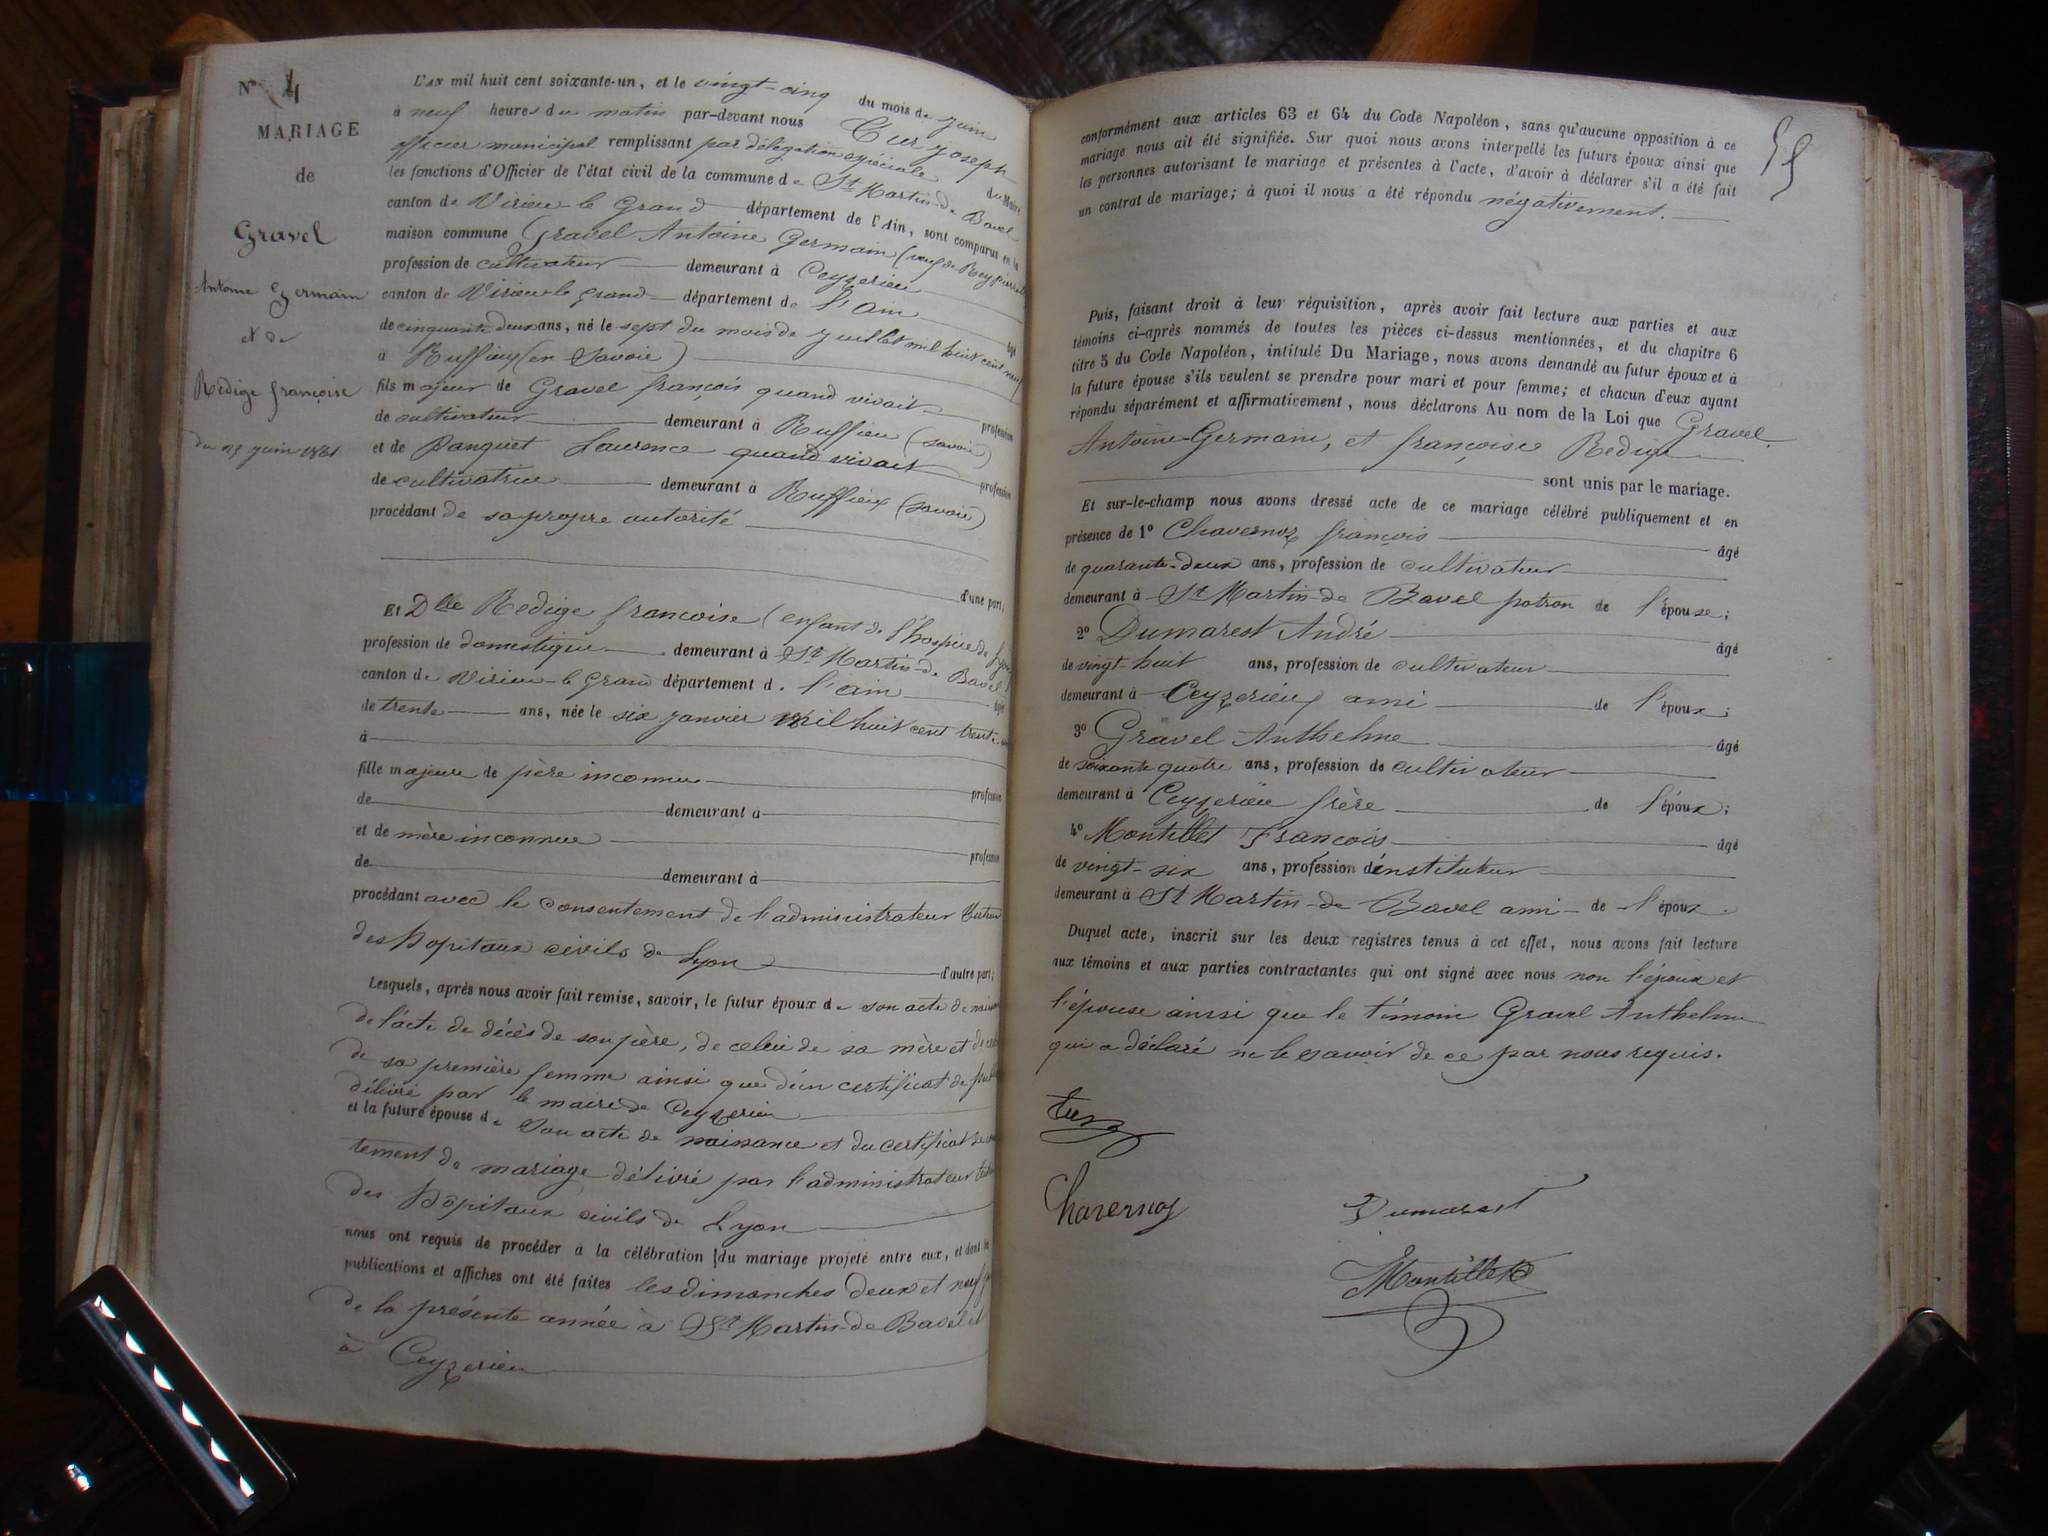 N° 4
MARIAGE
de
Gravel
Antoine Germain
et de
Redige françoise
du 25 juin 1861
L'AN mil huit cent soixante-un, et le vingt-cinq du mois de juin
à neuf heures du matin par-devant nous Cuez joseph
officier municipal remplissant par délégation spéciale du Maire
les fonctions d'Officier de l'état civil de la commune de St Martin-de Bavel
canton de Virieu le Grand département de l'Ain, sont comparus en la
maison commune Gravel Antoine Germain (veuf de
profession de cultivateur demeurant à Ceyzerieu
canton de Virieu-le grand département de l'Ain âgé
de cinquante deux ans, né le sept du mois de juillet mil huit cent neuf
à Ruffieux (en Savoie)
fils majeur de Gravel françois quand vivait profession
de cultivateur demeurant à Ruffieu (savoie)
et de Panquet Laurence quand vivait profession
de cultivatrice demeurant à Ruffieux (savoie)
procédant de sa propre autorité
d'une part;
Et Dlle Redige francoise (enfant de l'hospice de Lyon)
profession de domestique demeurant à St Martin-de Bavel
canton de Virieu-le Grand département d. l'ain âgée
de trente ans, née le six janvier mil huit cent trente-un
à
fille majeure de père inconnu profession
de demeurant à
et de mère inconnue profession
de demeurant à
procédant avec le consentement de l'administrateur tuteur
des hopitaux civils de Lyon d'autre part;
Lesquels, après nous avoir fait remise, savoir, le futur époux de son acte de naissance
de l'acte de décès de son père, de celui de sa mère et de celui
de sa première femme ainsi que d'un certificat de
délivré par le maire de Ceyzerieu
et la future épouse de son acte de naissance et du certificat de
tement de mariage délivré par l'administrateur tuteur
des Hôpitaux civils de Lyon
nous ont requis de procéder à la célébration du mariage projeté entre eux, et dont les
publications et affiches ont été faites les dimanches deux et neuf
de la présente année à St Martin-de Bavel et
à Ceyzerieu
55
conformément aux articles 63 et 64 du Code Napoléon, sans qu'aucune opposition à ce
mariage nous ait été signifiée. Sur quoi nous avons interpellé les futurs époux ainsi que
les personnes autorisant le mariage et présentes à l'acte, d'avoir à déclarer s'il a été fait
un contrat de mariage; à quoi il nous a été répondu négativement.
Puis, faisant droit à leur réquisition, après avoir fait lecture aux parties et aux
témoins ci-après nommés de toutes les pièces ci-dessus mentionnées, et du chapitre 6
titre 5 du Code Napoléon, intitulé Du Mariage, nous avons demandé au futur époux et à
la future épouse s'ils veulent se prendre pour mari et pour femme; et chacun d'eux ayant
répondu séparément et affirmativement, nous déclarons Au nom de la Loi que Gravel
Antoine-Germain, et françoise Redige
sont unis par le mariage.
Et sur-le-champ nous avons dressé acte de ce mariage célébré publiquement et en
présence de 1° Chavernoz françois âgé
de quarante-deux ans, profession de cultivateur
demeurant à St Martin-de Bavel patron de l'épouse;
2° Dumarest André âgé
de vingt-huit ans, profession de cultivateur
demeurant à Ceyzerieu ami de l'époux;
3° Gravel Anthelme âgé
de soixante quatre ans, profession de cultivateur
demeurant à Ceyzerieu frère de l'époux;
4° Montillet François âgé
de vingt-six ans, profession d'instituteur
demeurant à St Martin-de Bavel ami de l'époux.
Duquel acte, inscrit sur les deux registres tenus à cet effet, nous avons fait lecture
aux témoins et aux parties contractantes qui ont signé avec nous non l'époux et
l'épouse ainsi que le témoin Gravel Anthelme
qui a déclaré ne le savoir de ce par nous requis.
Cuez
Chavernoz
Dumarest
Montillet